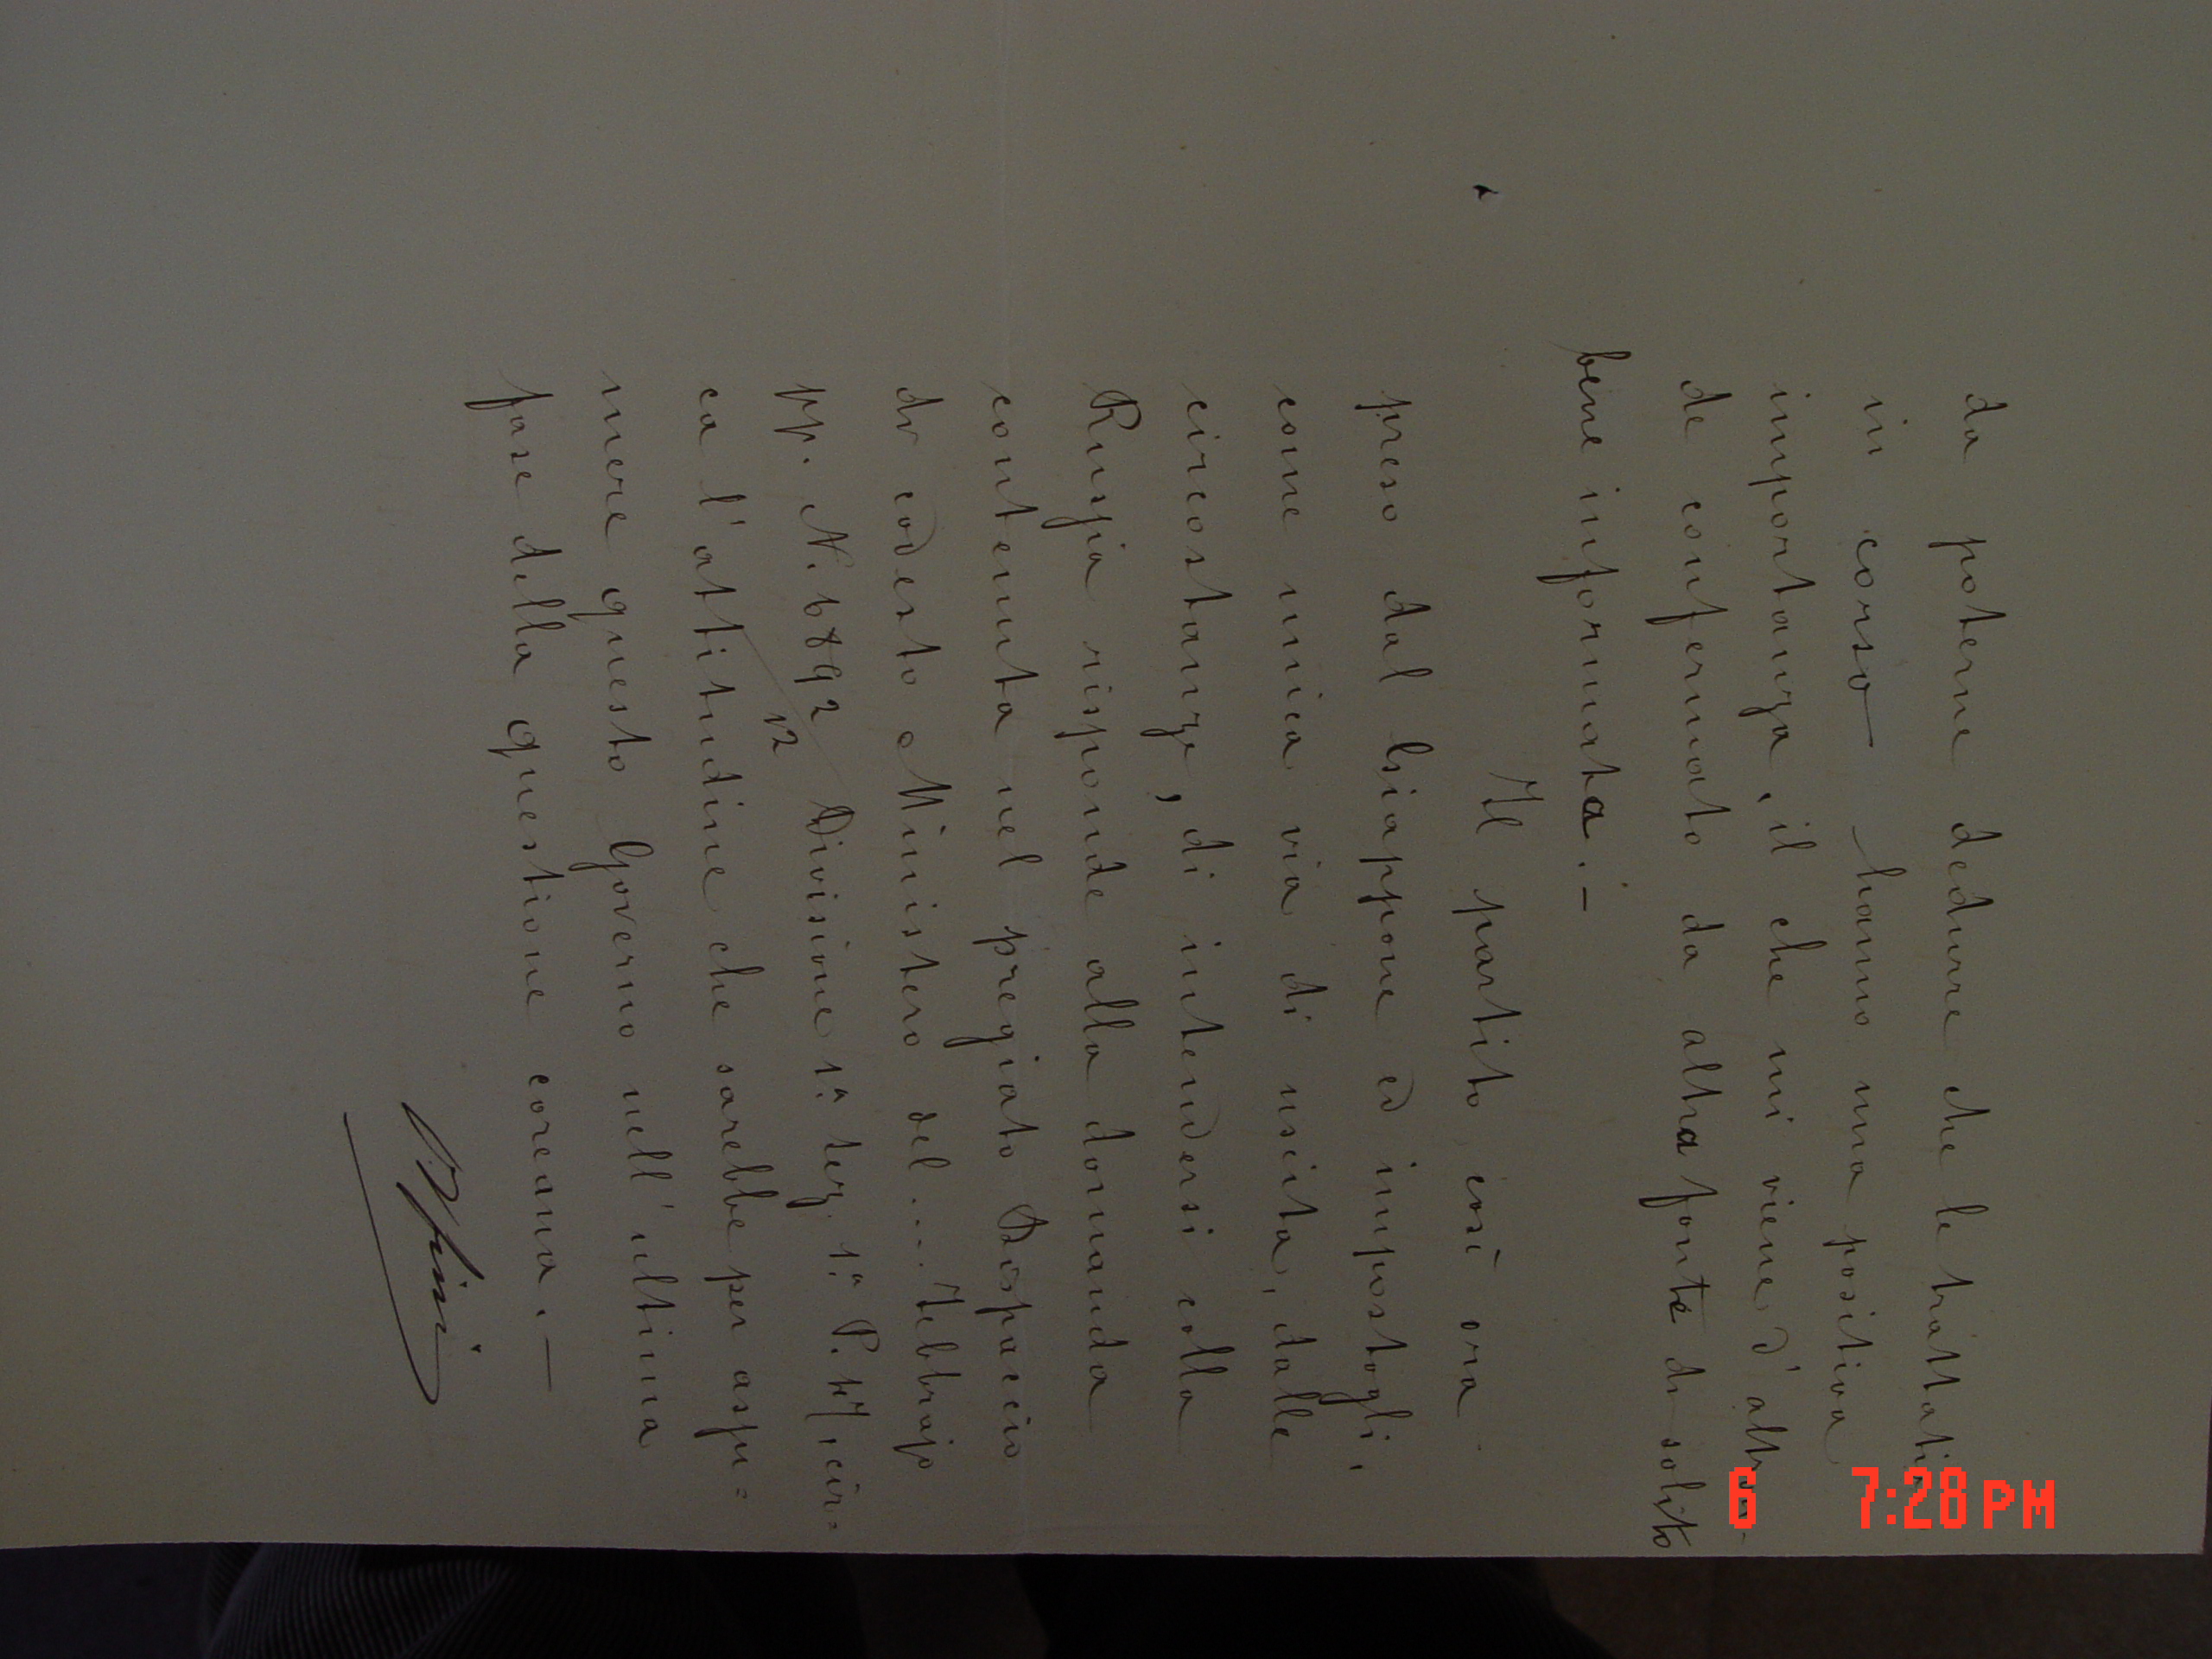 da poterne dedurre che le trattative
in corso hanno una positiva
importanza, il che mi viene d'altron-
de confermato da altra fonte di solito
bene informata. —
Il partito, così ora
preso dal Giappone ed impostogli,
come unica via di uscita, dalle
circostanze, di intendersi colla
Russia risponde alla domanda
contenuta nel pregiato Dispaccio
di codesto Ministero del ... Febbrajo
pp. N. 6892/12 Divisione 1ª Sez. 1ª P. 47, cir=
ca l'attitudine che sarebbe per assu=
mere questo Governo nell'ultima
fase della questione coreana. —
6 7:28 PM